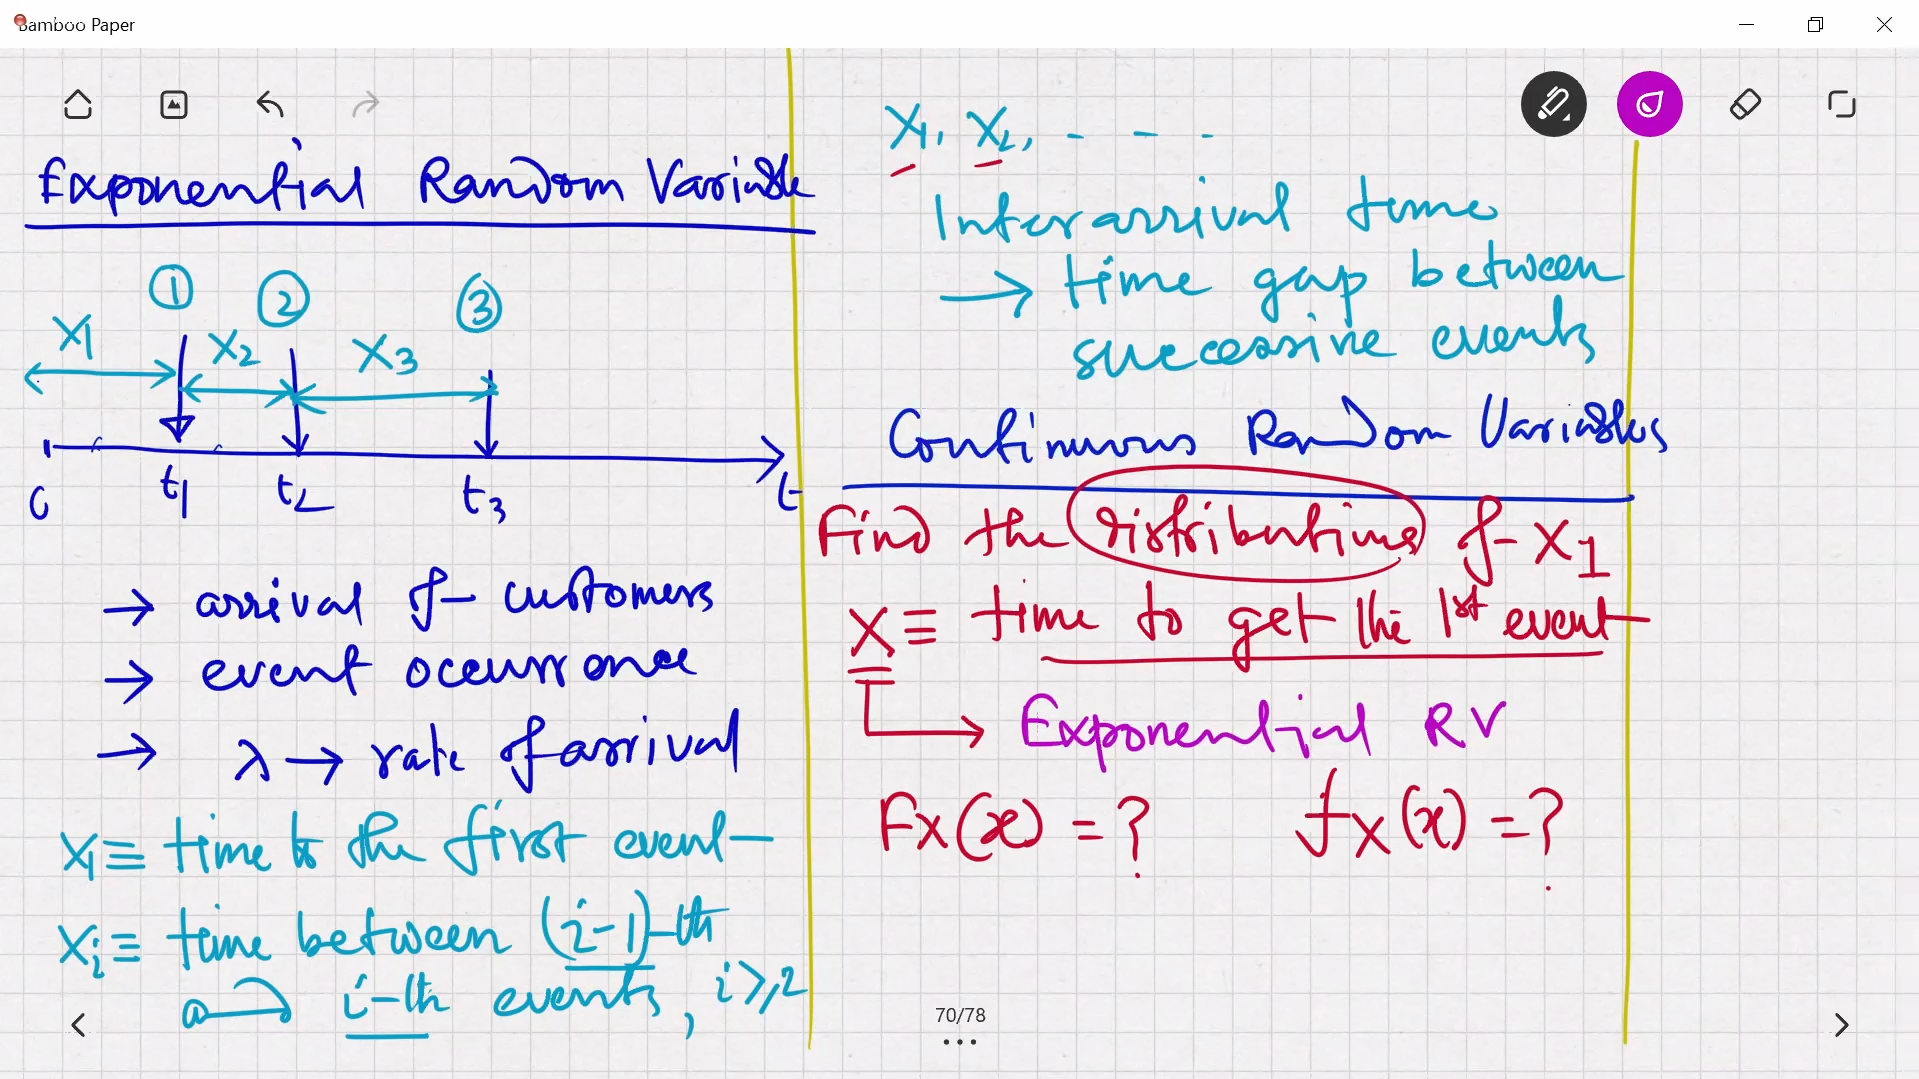 Bamboo Paper
Exponential Random Variable
① ② ③
X1 X2 X3
0 t1 t2 t3 t
→ arrival of customers
→ event occurrence
→ λ → rate of arrival
X1 ≡ time to the first event
Xi ≡ time between (i-1)-th
and i-th events, i ≥ 2
X1, X2, - - -
Interarrival time
→ time gap between
successive events
Continuous Random Variables
Find the distribution of X1
X ≡ time to get the 1st event
Exponential RV
FX(x) = ? fX(x) = ?
70/78